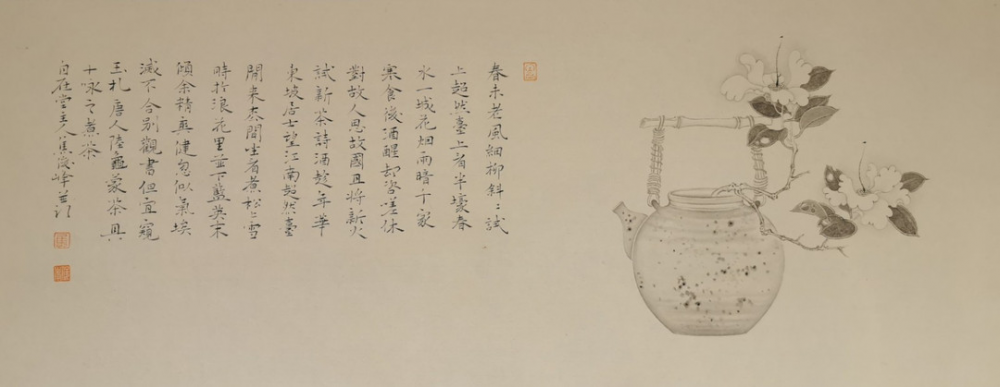 春未老風細柳斜〻試
上超然臺上看半壕春
水一城花烟雨暗千家
寒食後酒醒却咨嗟休
對故人思故國且將新火
試新茶詩酒趁年華
東坡居士望江南超然臺
閒來松間坐看煮松上雪
時於浪花里並下藍英末
傾余精爽健忽似氛埃
滅不合別觀書但宜窺
玉札唐人陸龜蒙茶具
十咏之煮茶
自在堂主人焦俊峰